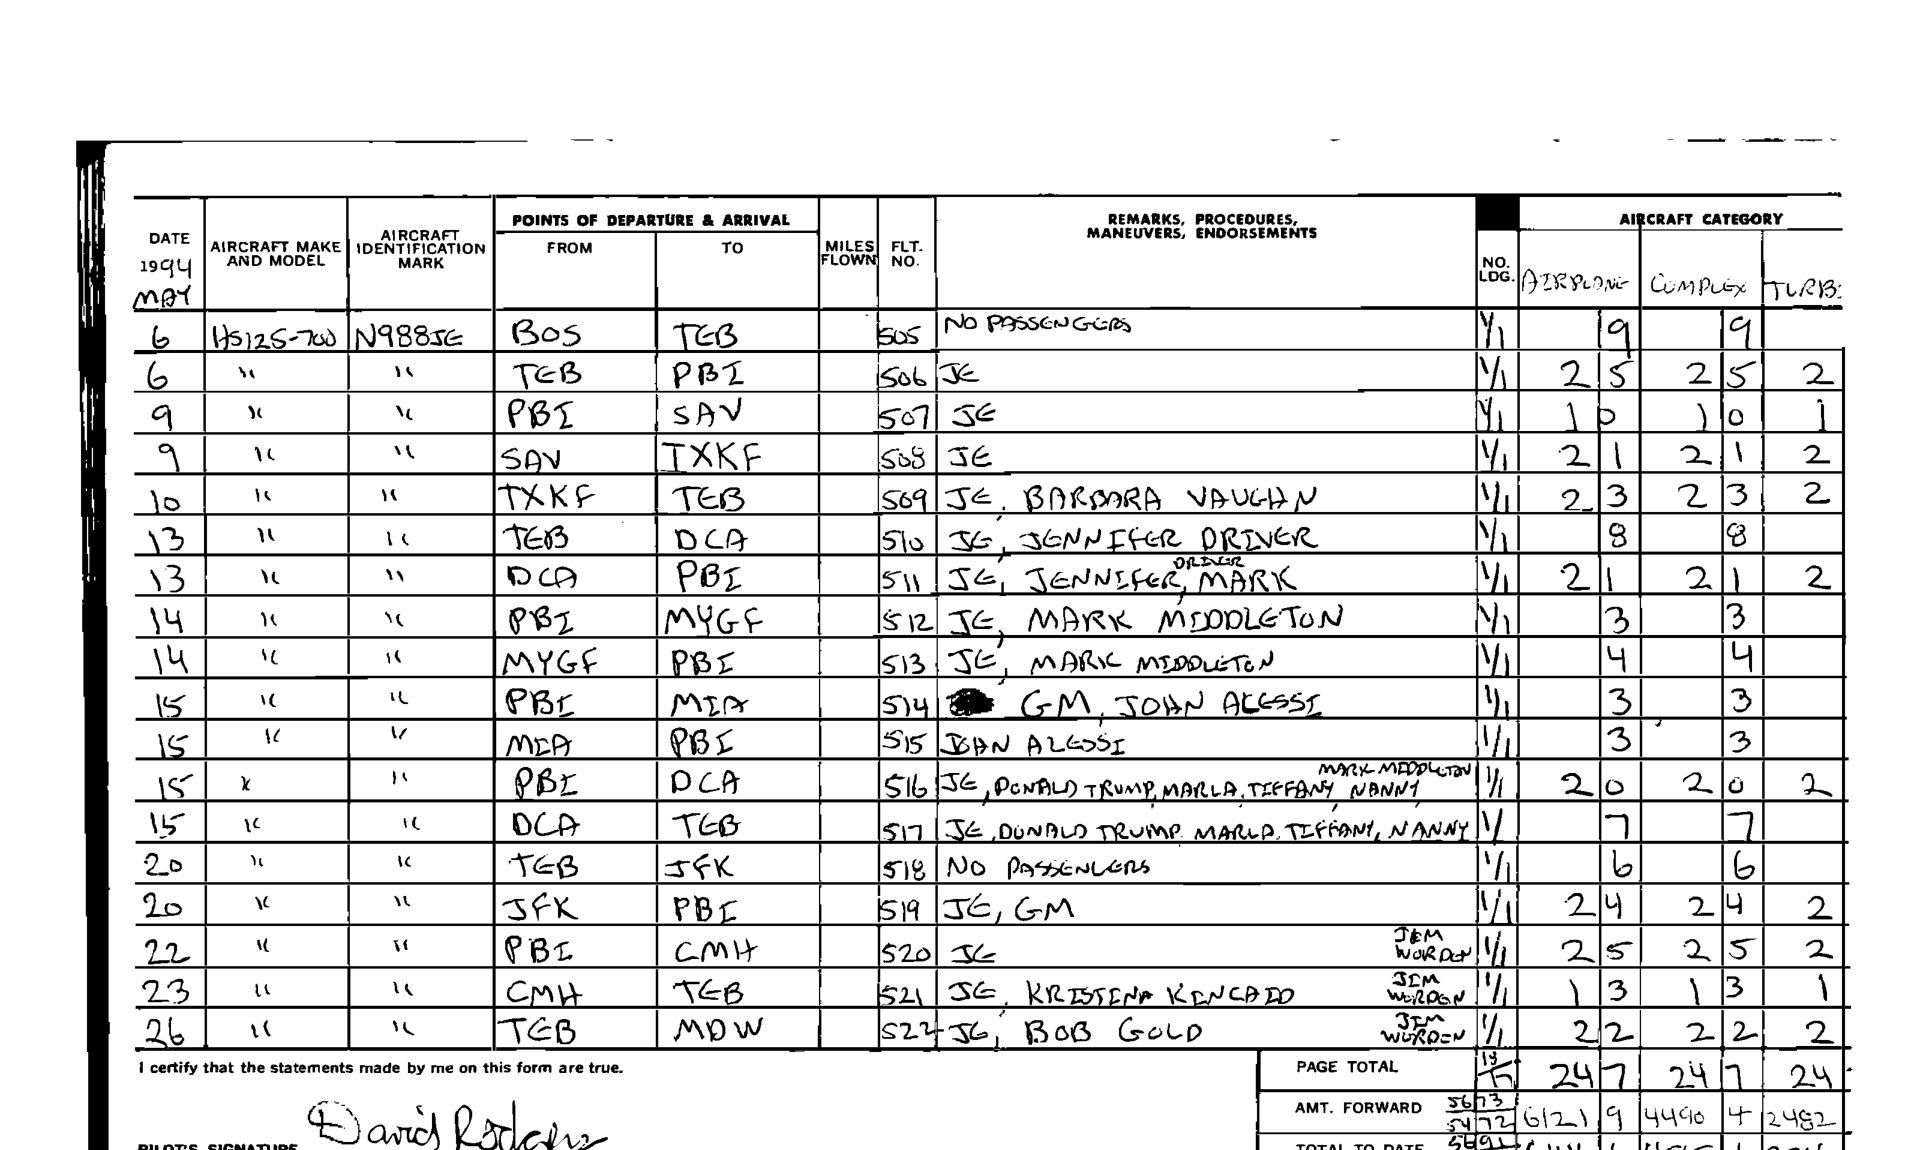 DATE 1994 MAY AIRCRAFT MAKE AND MODEL AIRCRAFT IDENTIFICATION MARK POINTS OF DEPARTURE & ARRIVAL FROM TO MILES FLOWN FLT. NO. REMARKS, PROCEDURES, MANEUVERS, ENDORSEMENTS NO. LDG. AIRCRAFT CATEGORY AIRPLANE COMPLEX TURB
6 HS125-700 N988JE BOS TEB 505 NO PASSENGERS 1/1 9 9
6 " " TEB PBI 506 JE 1/1 2 5 2 5 2
9 " " PBI SAV 507 JE 1/1 1 0 1 0 1
9 " " SAV TXKF 508 JE 1/1 2 1 2 1 2
10 " " TXKF TEB 509 JE, BARBARA VAUGHN 1/1 2 3 2 3 2
13 " " TEB DCA 510 JE, JENNIFER DRIVER 1/1 8 8
13 " " DCA PBI 511 JE, JENNIFER DRIVER, MARK 1/1 2 1 2 1 2
14 " " PBI MYGF 512 JE, MARK MIDDLETON 1/1 3 3
14 " " MYGF PBI 513 JE, MARK MIDDLETON 1/1 4 4
15 " " PBI MIA 514 GM, JOHN ALESSI 1/1 3 3
15 " " MIA PBI 515 JOHN ALESSI 1/1 3 3
15 " " PBI DCA 516 JE, DONALD TRUMP, MARLA, TIFFANY NANNY MARK MIDDLETON 1/1 2 0 2 0 2
15 " " DCA TEB 517 JE, DONALD TRUMP, MARLA, TIFFANY, NANNY 1/ 7 7
20 " " TEB JFK 518 NO PASSENGERS 1/1 6 6
20 " " JFK PBI 519 JE, GM 1/1 2 4 2 4 2
22 " " PBI CMH 520 JE JIM WORDEN 1/1 2 5 2 5 2
23 " " CMH TEB 521 JE, KRISTINA KINCAID JIM WORDEN 1/1 1 3 1 3 1
26 " " TEB MDW 522 JE, BOB GOLD JIM WORDEN 1/1 2 2 2 2 2
I certify that the statements made by me on this form are true. PAGE TOTAL 24 7 24 7 24
AMT. FORWARD 5673 5472 6121 9 4490 4 2482
PILOT'S SIGNATURE David Rodgers TOTAL TO DATE